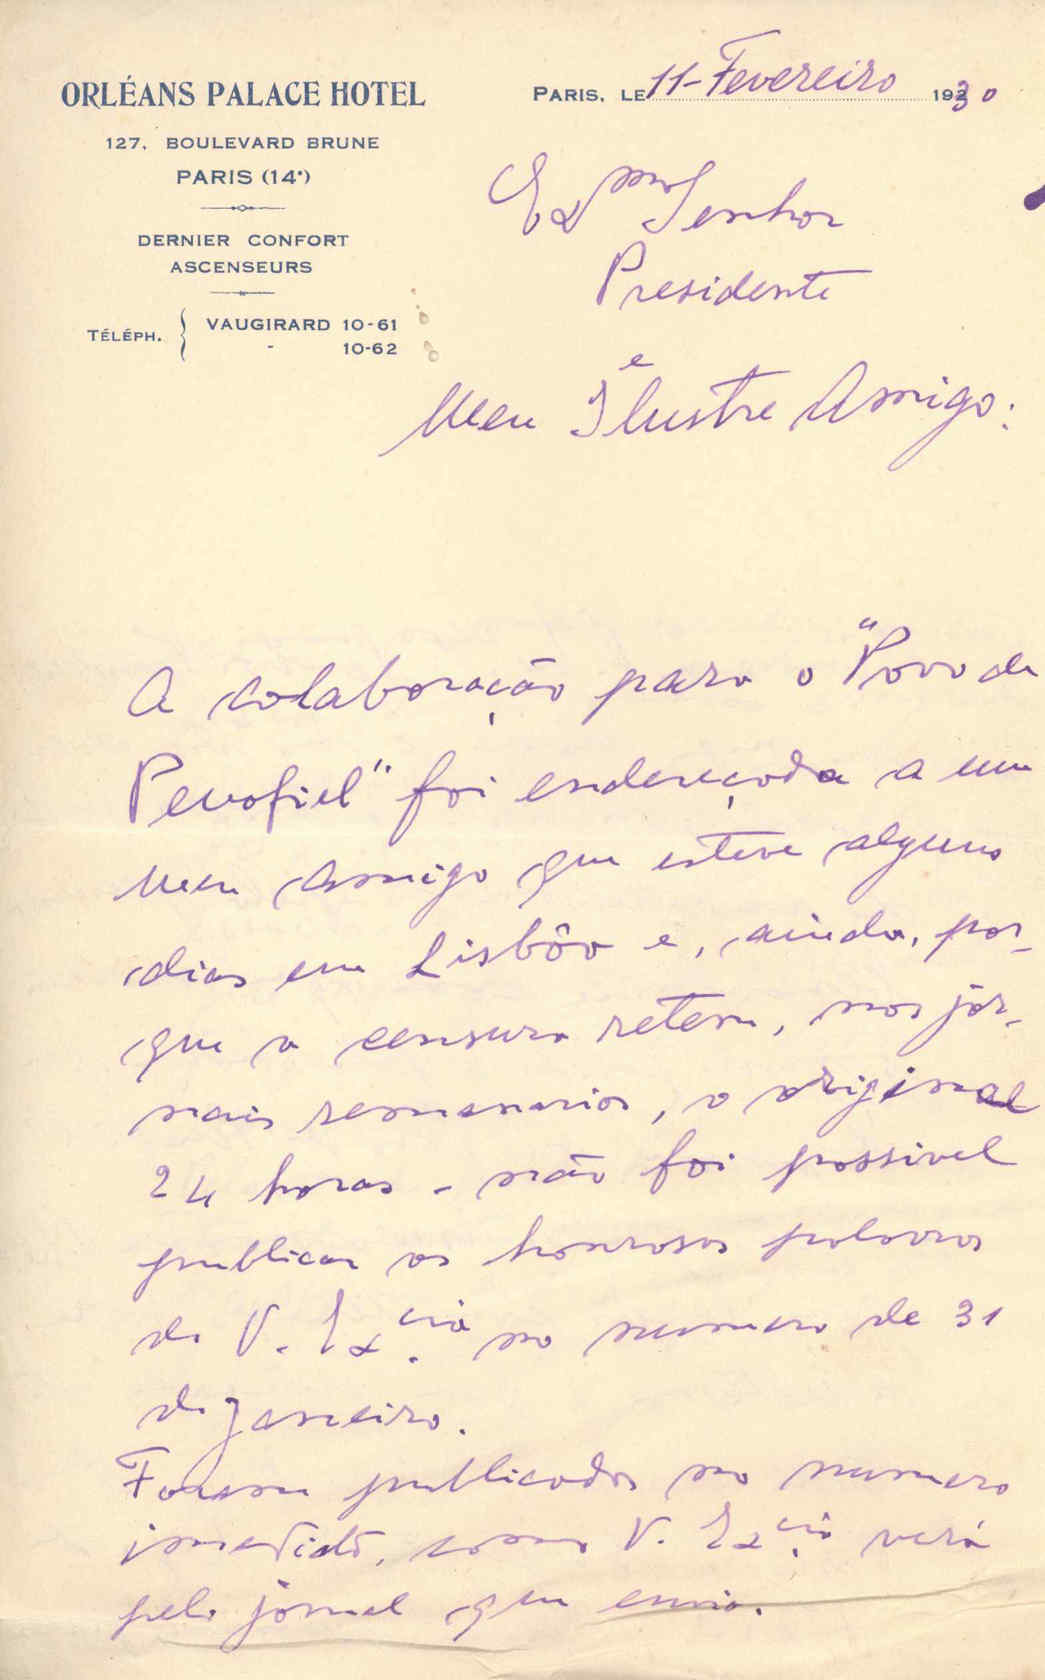 ORLÉANS PALACE HOTEL
127, BOULEVARD BRUNE
PARIS (14e)
DERNIER CONFORT
ASCENSEURS
TÉLÉPH. { VAUGIRARD 10-61
- 10-62
PARIS, LE 11-Fevereiro 1930
Exmo Senhor
Presidente
e
Meu Ilustre Amigo:
A colaboração para o "Povo de
Penafiel" foi endereçada a um
meu amigo que esteve alguns
dias em Lisbôa e, ainda, por-
que a censura retem, nos jor-
nais semanarios, o original
24 horas - não foi possivel
publicar as honrosas palavras
de V. Ex.cia no numero de 31
de Janeiro.
Foram publicadas no numero
imediato, como V. Ex.cia verá
pelo jornal que envio.